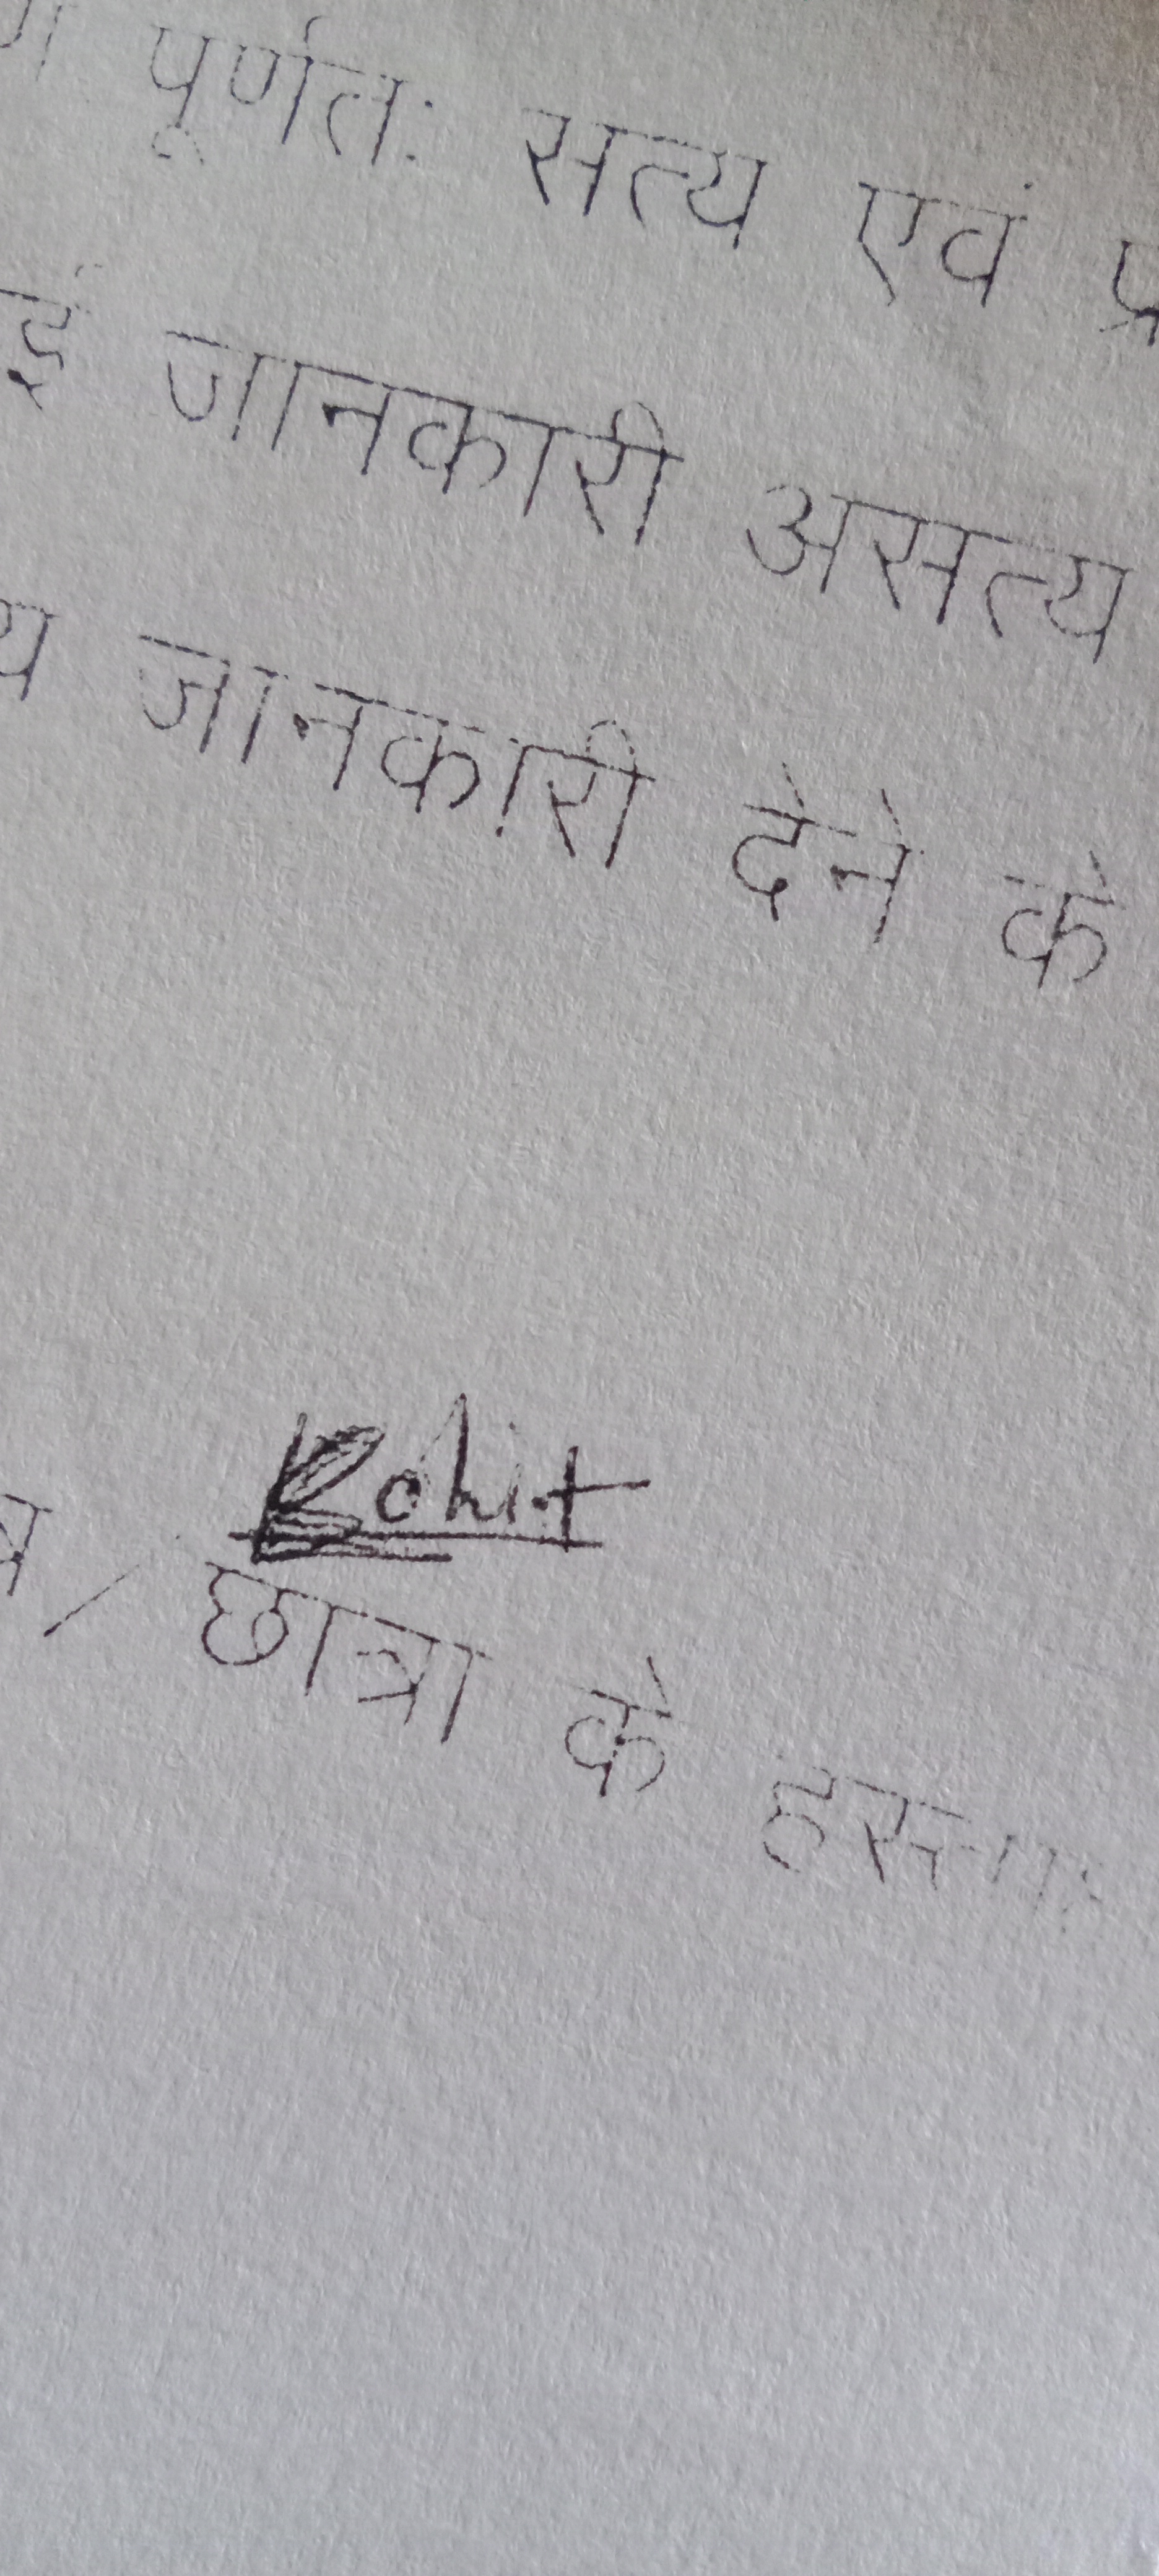 पूर्णतः सत्य एवं
जानकारी असत्य
जानकारी देने के
Rohit
/ छात्रा के